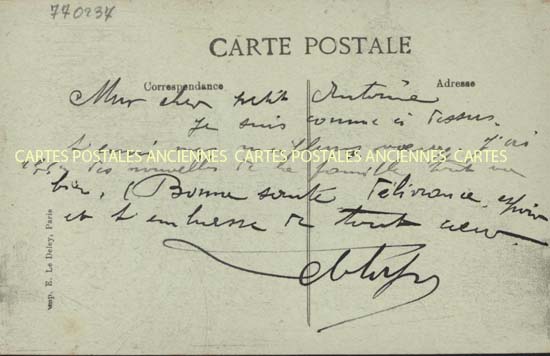 770237
CARTE POSTALE
Correspondance
Adresse
Mon cher petit Antoine
Je suis comme ci dessus.
J'ai
CARTES POSTALES ANCIENNES CARTES POSTALES ANCIENNES CARTES
des nouvelles de la famille tout va
bien. Bonne santé Délivrance, espoir
et t'embrasse de tout cœur.
Imp. E. Le Deley, Paris